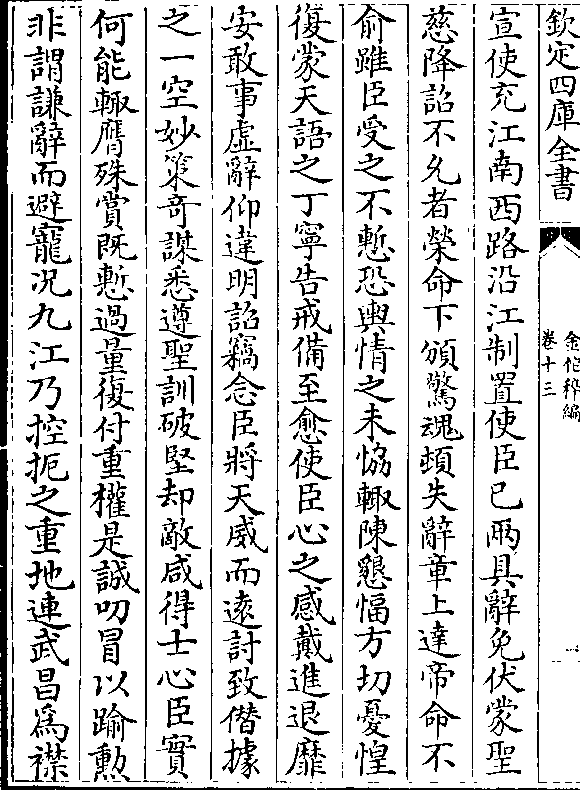 欽定四庫全書
金佗稡編
卷十三
宣使充江南西路沿江制置使臣已兩具辭免伏蒙聖
慈降詔不允者榮命下頒驚魂頓失辭章上達帝命不
俞雖臣受之不慙恐輿情之未恊輙陳懇愊方切憂惶
復蒙天語之丁寧告戒備至愈使臣心之感戴進退靡
安敢事虛辭仰違明詔竊念臣將天威而遠討致僣據
之一空妙策奇謀悉遵聖訓破堅却敵咸得士心臣實
何能輙膺殊賞既慙過量復付重權是誠叨冒以踰勲
非謂謙辭而避寵况九江乃控扼之重地連武昌為襟